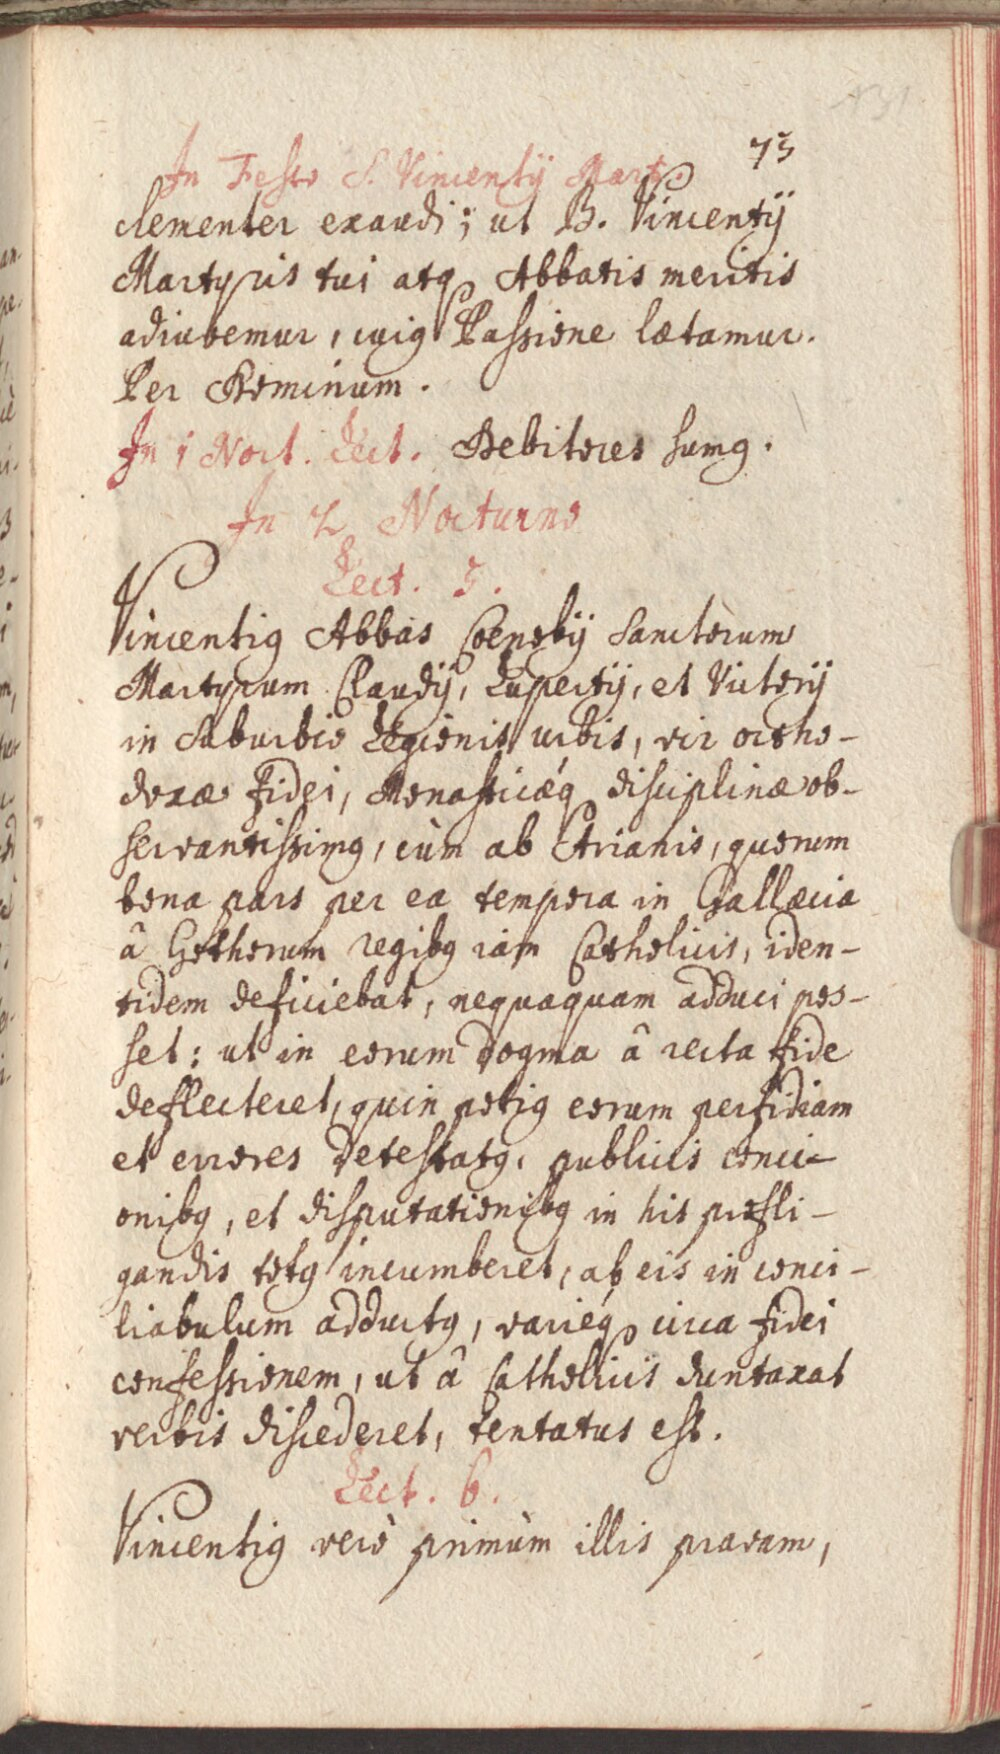 131
73
In Festo S. Vincentij Mart.
clementer exaudi; ut B. Vincentij
Martyris tui atqꝫ Abbatis meritis
adiuvemur, cuiꝰ Passione lætamur.
Per Dominum.
In 1 Noct. Lect. Debitores sumꝰ.
In 2 Nocturno
Lect. 5.
Vincentiꝰ Abbas Cœnobij Sanctorum
Martyrum Claudij, Lupercij, et Victorij
in Suburbio Legionis urbis, vir ortho-
doxæ fidei, Monasticæqꝫ disciplinæ ob-
servantissimꝰ, cùm ab Arianis, quorum
bona pars per ea tempora in Gallæcia
â Gothorum regibꝰ iam Catholicis, iden-
tidem deficiebat, nequaquam adduci pos-
set: ut in eorum dogma â recta fide
deflecteret, quin potiꝰ eorum perfidiam
et errores detestatꝰ, publicis conci-
onibꝰ, et disputationibꝰ in his profli-
gandis totꝰ incumberet, ab eis in conci-
liabulum adductꝰ, varièqꝫ circa fidei
confessionem, ut â Catholicis duntaxat
verbis discederet, tentatus est.
Lect. 6.
Vincentiꝰ verò primùm illis pravam,